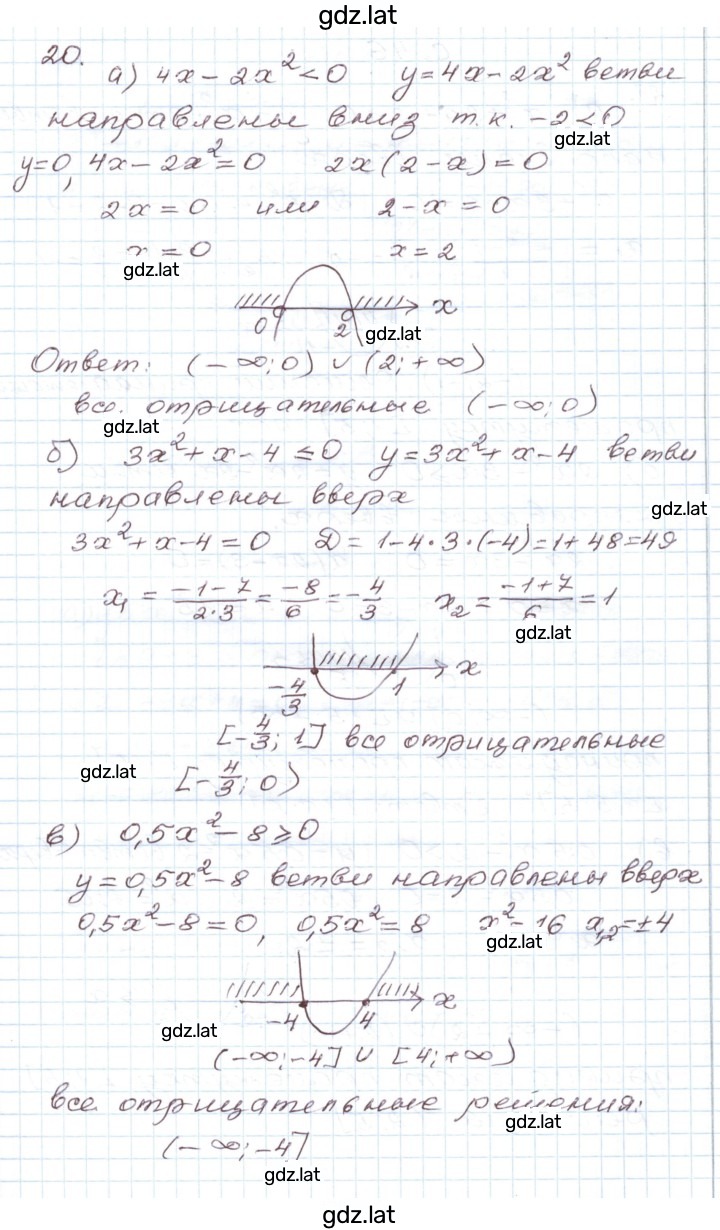 gdz.lat
20.
а) 4x − 2x² < 0 y = 4x − 2x² ветви
направлены вниз т.к. −2 < 0
gdz.lat
y=0, 4x − 2x² = 0 2x(2 − x) = 0
2x = 0 или 2 − x = 0
x = 0 x = 2
gdz.lat
x
0 2
gdz.lat
Ответ: (−∞; 0) ∪ (2; +∞)
все отрицательные (−∞; 0)
gdz.lat
б) 3x² + x − 4 ≤ 0 y = 3x² + x − 4 ветви
направлены вверх
gdz.lat
3x² + x − 4 = 0 D = 1 − 4·3·(−4) = 1 + 48 = 49
x₁ = (−1−7)/(2·3) = −8/6 = −4/3 x₂ = (−1+7)/6 = 1
gdz.lat
x
−4/3 1
[−4/3; 1] все отрицательные
gdz.lat
[−4/3; 0)
в) 0,5x² − 8 ≥ 0
y = 0,5x² − 8 ветви направлены вверх
0,5x² − 8 = 0, 0,5x² = 8 x² = 16 x₁,₂ = ±4
gdz.lat
x
−4 4
gdz.lat
(−∞; −4] ∪ [4; +∞)
все отрицательные решения:
gdz.lat
(−∞; −4]
gdz.lat
gdz.lat